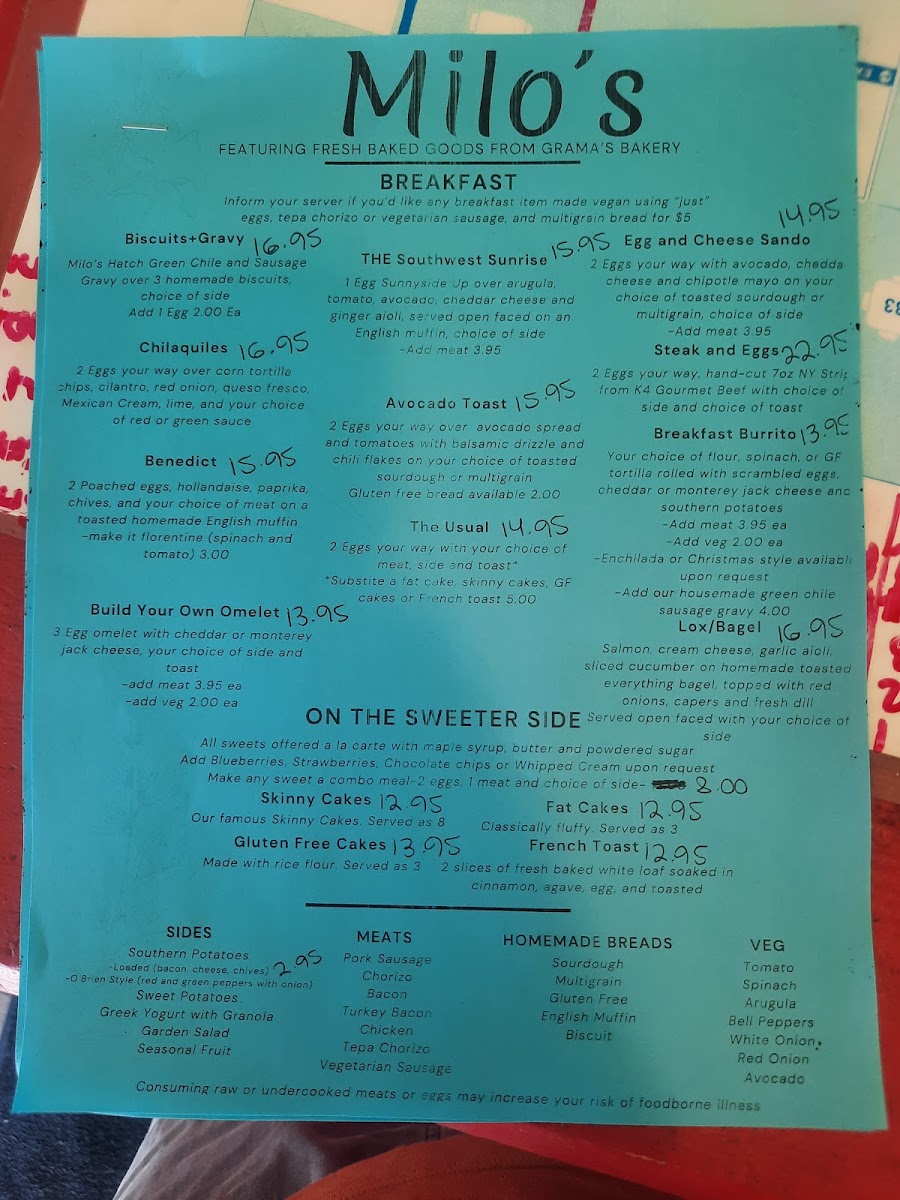 Milo's
FEATURING FRESH BAKED GOODS FROM GRAMA'S BAKERY
BREAKFAST
Inform your server if you'd like any breakfast item made vegan using "just"
eggs, tepa chorizo or vegetarian sausage, and multigrain bread for $5
Biscuits+Gravy 16.95
Milo's Hatch Green Chile and Sausage
Gravy over 3 homemade biscuits,
choice of side
Add 1 Egg 2.00 Ea
Chilaquiles 16.95
2 Eggs your way over corn tortille
chips, cilantro, red onion, queso fresco,
Mexican Cream, lime, and your choice
of red or green sauce
Benedict 15.95
2 Poached eggs, hollandaise, paprika,
chives, and your choice of meat on a
toasted homemade English muffin
-make it florentine (spinach and
tomato) 3.00
Build Your Own Omelet 13.95
3 Egg omelet with cheddar or monterey
jack cheese, your choice of side and
toast
-add meat 3.95 ea
-add veg 2.00 ea
THE Southwest Sunrise 15.95
1 Egg Sunnyside Up over arugula,
tomato, avocado, cheddar cheese and
ginger aioli, served open faced on an
English muffin, choice of side
-Add meat 3.95
Avocado Toast 15.95
2 Eggs your way over avocado spread
and tomatoes with balsamic drizzle and
chili flakes on your choice of toasted
sourdough or multigrain
Gluten free bread available 2.00
The Usual 14.95
2 Eggs your way with your choice of
meat, side and toast*
*Substite a fat cake, skinny cakes, GF
cakes or French toast 5.00
14.95
Egg and Cheese Sando
2 Eggs your way with avocado, chedda
cheese and chipotle mayo on your
choice of toasted sourdough or
multigrain, choice of side
-Add meat 3.95
Steak and Eggs 22.95
2 Eggs your way, hand-cut 7oz NY Strip
from K4 Gourmet Beef with choice of
side and choice of toast
Breakfast Burrito 13.95
Your choice of flour, spinach, or GF
tortilla rolled with scrambled eggs,
cheddar or monterey jack cheese and
southern potatoes
-Add meat 3.95 ea
-Add veg 2.00 ea
-Enchilada or Christmas style available
upon request
-Add our housemade green chile
sausage gravy 4.00
Lox/Bagel 16.95
Salmon, cream cheese, garlic aioli,
sliced cucumber on homemade toasted
everything bagel, topped with red
onions, capers and fresh dill
Served open faced with your choice of
side
ON THE SWEETER SIDE
All sweets offered a la carte with maple syrup, butter and powdered sugar
Add Blueberries, Strawberries, Chocolate chips or Whipped Cream upon request
Make any sweet a combo meal-2 eggs, 1 meat and choice of side- 8.00
Skinny Cakes 12.95
Our famous Skinny Cakes. Served as 8
Fat Cakes 12.95
Classically fluffy. Served as 3
Gluten Free Cakes 13.95
Made with rice flour. Served as 3
French Toast 12.95
2 slices of fresh baked white loaf soaked in
cinnamon, agave, egg, and toasted
SIDES
Southern Potatoes
-Loaded (bacon, cheese, chives) 2.95
-O'Brien Style (red and green peppers with onion)
Sweet Potatoes
Greek Yogurt with Granola
Garden Salad
Seasonal Fruit
MEATS
Pork Sausage
Chorizo
Bacon
Turkey Bacon
Chicken
Tepa Chorizo
Vegetarian Sausage
HOMEMADE BREADS
Sourdough
Multigrain
Gluten Free
English Muffin
Biscuit
VEG
Tomato
Spinach
Arugula
Bell Peppers
White Onion
Red Onion
Avocado
Consuming raw or undercooked meats or eggs may increase your risk of foodborne illness